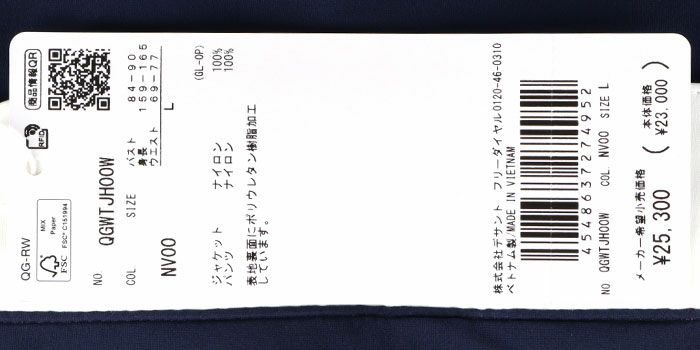 商品情報QR
RFID
QG-RW
MIX
Paper
FSC
FSC® C151994
NO QGWTJH00W
COL SIZE バスト 84-90
身長 159-165
ウエスト 69-77
NV00 L
(GL-OP)
ジャケット ナイロン 100%
パンツ ナイロン 100%
表地裏面にポリウレタン樹脂加工
しています。
株式会社デサント フリーダイヤル0120-46-0310
ベトナム製/MADE IN VIETNAM
4548637274952
NO QGWTJH00W COL NV00 SIZE L
メーカー希望小売価格 (本体価格
¥25,300 ¥23,000)